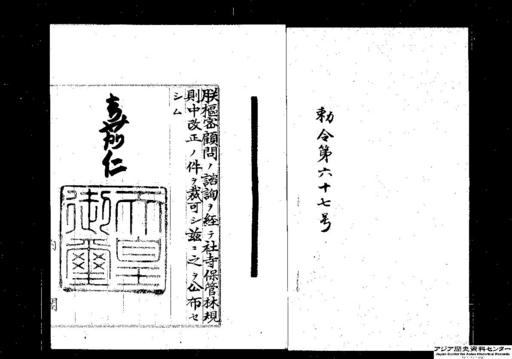 勅令第六十七号
朕枢密顧問ノ諮詢ヲ経テ社寺保管林規
則中改正ノ件ヲ裁可シ茲ニ之ヲ公布セ
シム
嘉仁
天皇
御璽
内
閣
アジア歴史資料センター
Japan Center for Asian Historical Records